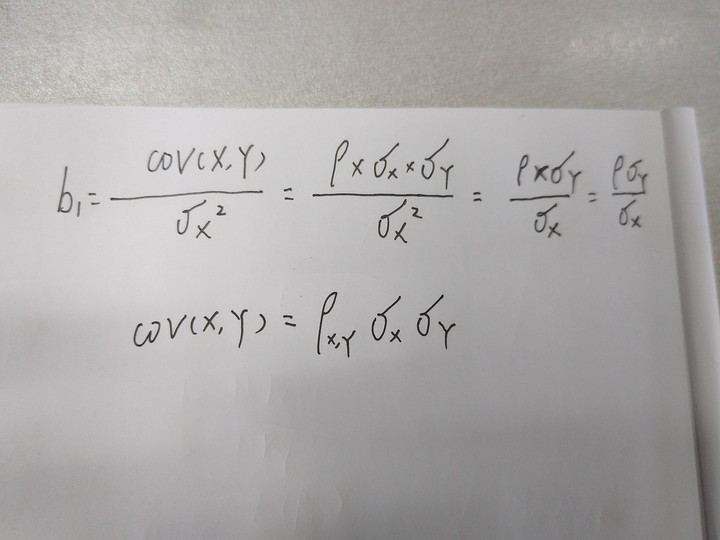 b₁ = cov(X,Y) / σₓ² = ρ × σₓ × σ_Y / σₓ² = ρ × σ_Y / σₓ = ρσ_Y / σₓ
cov(X,Y) = ρ_{x,Y} σₓ σ_Y